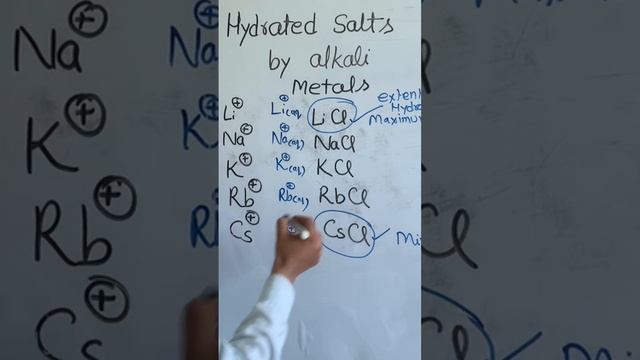 Hydrated Salts
by alkali
Metals
Li⁺ Li⁺(aq) LiCl exten
Hydra
Maximum
Na⁺ Na⁺(aq) NaCl
K⁺ K⁺(aq) KCl
Rb⁺ Rb⁺(aq) RbCl
Cs⁺ CsCl Mi
Na⁺ Na
K⁺ K
Rb⁺ R
Cs⁺ Cl Mi